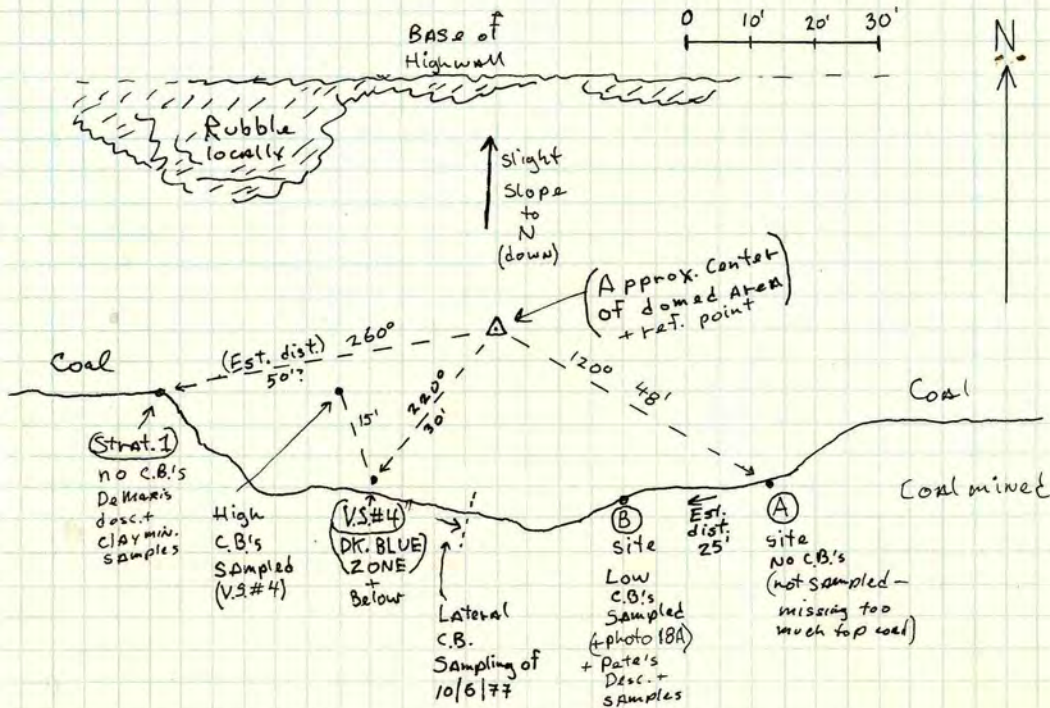 0 10' 20' 30'
N
BASE of
Highwall
Rubble
locally
slight
slope
to
N
(down)
(Approx. Center
of domed Area
+ ref. point)
Coal
(Est. dist.) 260°
50'?
15'
220°
30'
120°
48'
COAL
Coal mined
Strat. 1
no C.B.'s
DeMaris
desc. +
CLAY min.
SAmples
High
C.B.'s
SAmpled
(V.S.#4)
V.S.#4
(DK. BLUE
ZONE)
+
Below
Lateral
C.B.
SAmpling of
10/6/77
B
site
Low
C.B.'s
SAmpled
(+photo 18A)
+ Pete's
Desc. +
SAmples
Est.
dist.
25'
A
site
No C.B.'s
(not SAmpled -
missing too
much top coal)